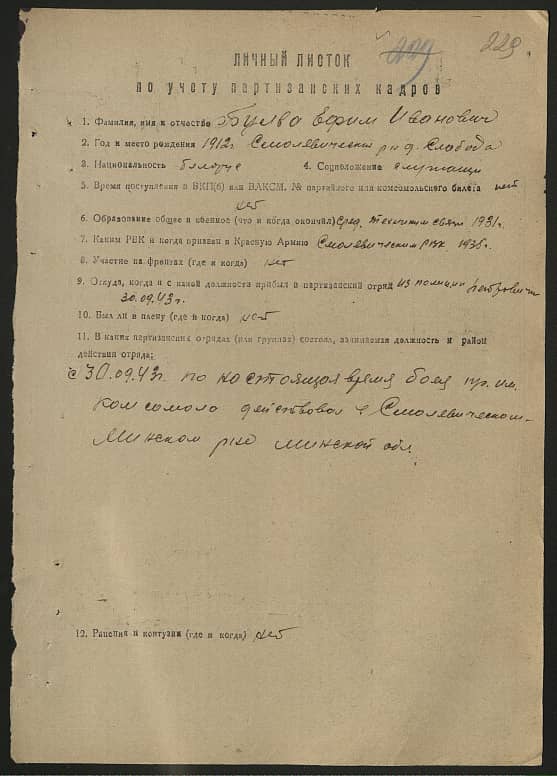 229 229.
ЛИЧНЫЙ ЛИСТОК
по учету партизанских кадров
1. Фамилия, имя и отчество Булва Ефим Иванович
2. Год и место рождения 1912г Смолевический р-н д. Слобода
3. Национальность белорус 4. Соцположение служащий
5. Время поступления в ВКП(б) или ВЛКСМ, № партийного или комсомольского билета нет
нет
6. Образование общее и военное (что и когда окончил) сред. техникум связи 1931г.
7. Каким РВК и когда призван в Красную Армию Смолевическим РВК 1935г.
8. Участие на фронтах (где и когда) нет
9. Откуда, когда и с какой должности прибыл в партизанский отряд из полиции
30.09.43г.
10. Был ли в плену (где и когда) нет
11. В каких партизанских отрядах (или группах) состоял, занимаемая должность и район
действия отряда:
с 30.09.43г по настоящая время боец пр. им.
Комсомола действовал в Смолевическом-
Минском р-не Минской обл.
12. Ранения и контузии (где и когда) нет